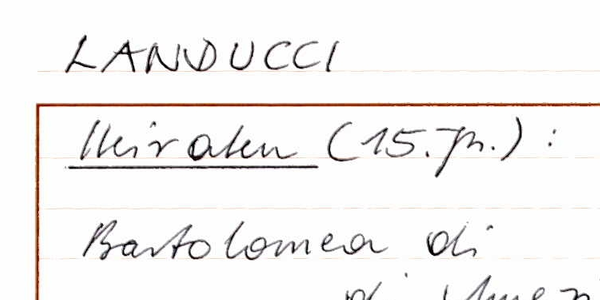 LANDUCCI
Heiraten (15. Jh.):
Bartolomea di
di